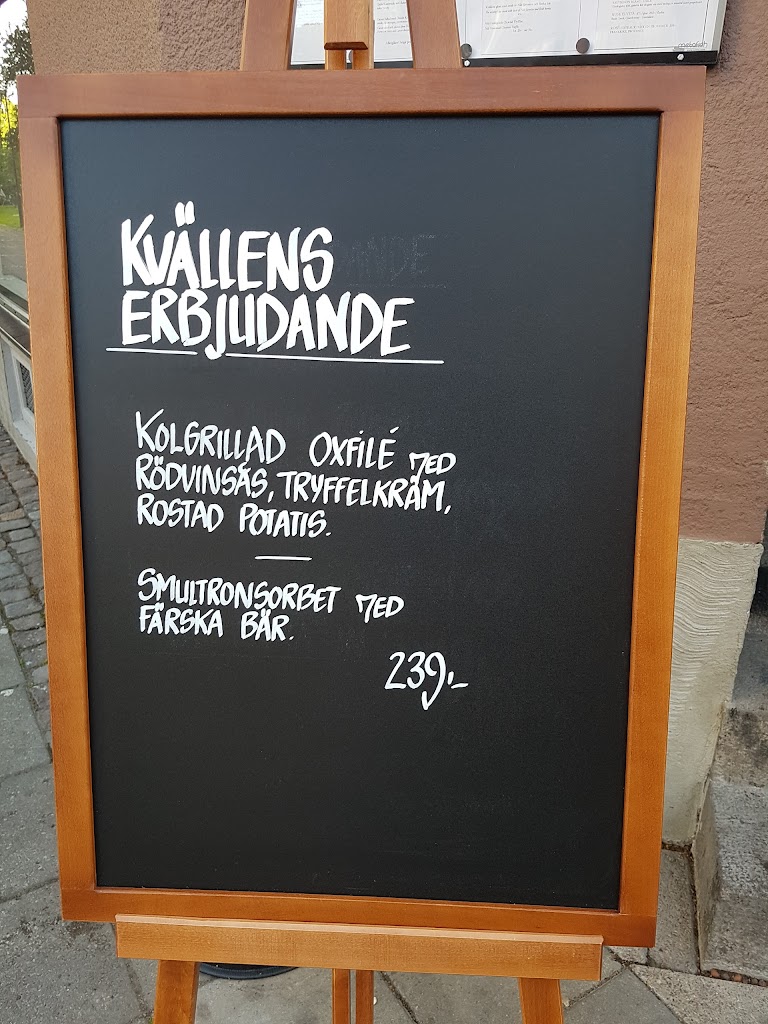 KVÄLLENS
ERBJUDANDE
KOLGRILLAD OXFILÉ MED
RÖDVINSÅS, TRYFFELKRÄM,
ROSTAD POTATIS.
SMULTRONSORBET MED
FÄRSKA BÄR.
239.-